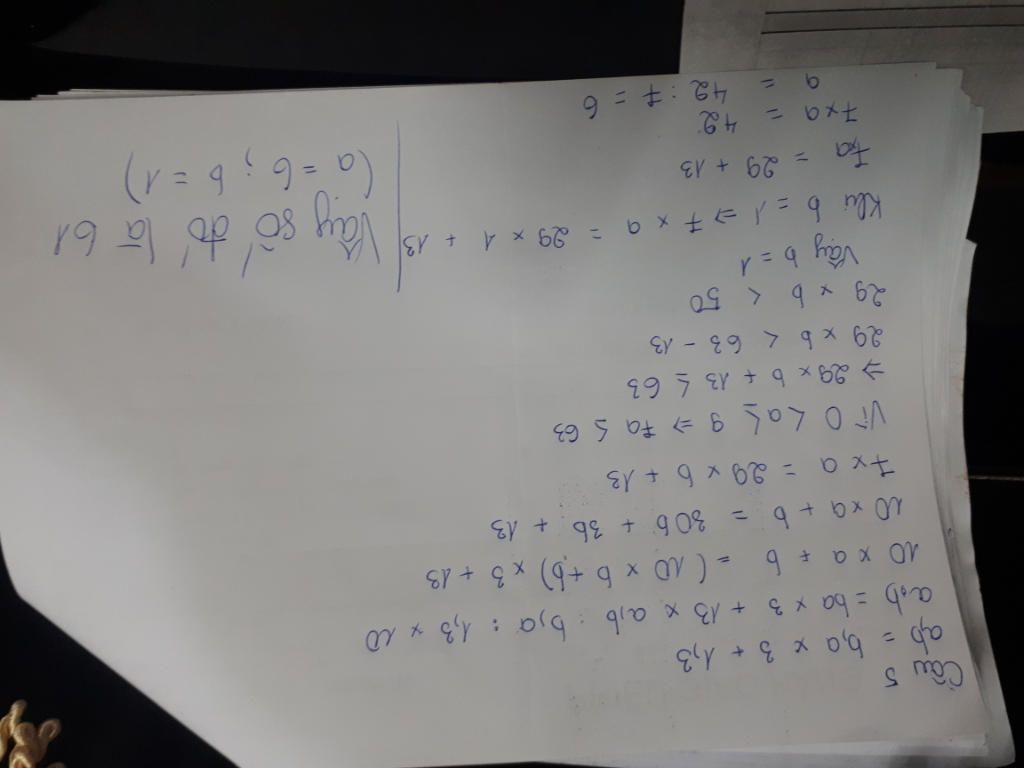 Câu 5
a,b = b,a x 3 + 1,3
a,b = ba x 3 + 13 x a,b : b,a : 1,3 x 10
10 x a + b = (10 x b + b) x 3 + 13
10 x a + b = 30b + 3b + 13
7 x a = 29 x b + 13
Vì 0 < a ≤ 9 => 7a ≤ 63
=> 29 x b + 13 ≤ 63
29 x b < 63 - 13
29 x b < 50
Vậy b = 1
Khi b = 1 => 7 x a = 29 x 1 + 13
7xa = 29 + 13
7xa = 42
a = 42 : 7 = 6
Vậy số đó là 61
(a = 6 ; b = 1)